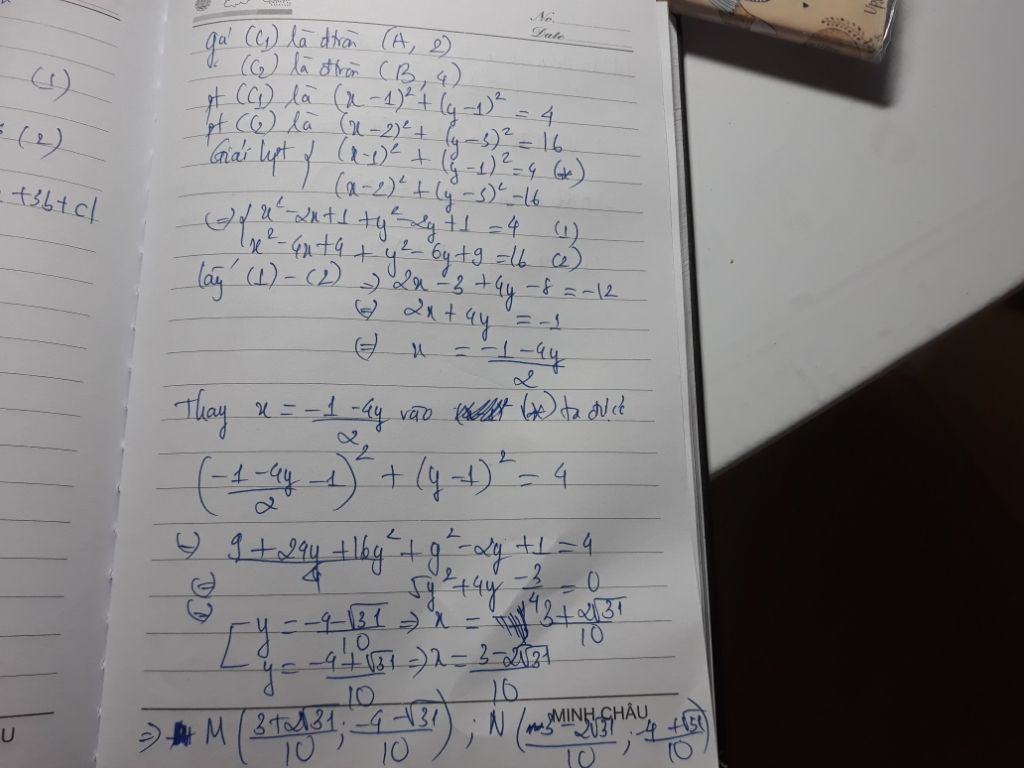 No.
Date
(1)
(2)
+3b+c|
gọi (C1) là đtròn (A, 2)
(C2) là đtròn (B, 4)
pt (C1) là (x-1)² + (y-1)² = 4
pt (C2) là (x-2)² + (y-3)² = 16
Giải hpt { (x-1)² + (y-1)² = 4 (*)
(x-2)² + (y-3)² = 16
(=) { x² - 2x + 1 + y² - 2y + 1 = 4 (1)
x² - 4x + 4 + y² - 6y + 9 = 16 (2)
lấy (1) - (2) => 2x - 3 + 4y - 8 = -12
(=) 2x + 4y = -1
(=) x = (-1-4y)/2
Thay x = (-1-4y)/2 vào (*) ta được
((-1-4y)/2 - 1)² + (y-1)² = 4
(=) (9 + 24y + 16y²)/4 + y² - 2y + 1 = 4
(=) 5y² + 4y - 3/4 = 0
(=) [ y = (-4-√31)/10 => x = (3+2√31)/10
y = (-4+√31)/10 => x = (3-2√31)/10
MINH CHÂU
=> M ((3+2√31)/10 ; (-4-√31)/10) ; N ((3-2√31)/10 ; (-4+√31)/10)
U